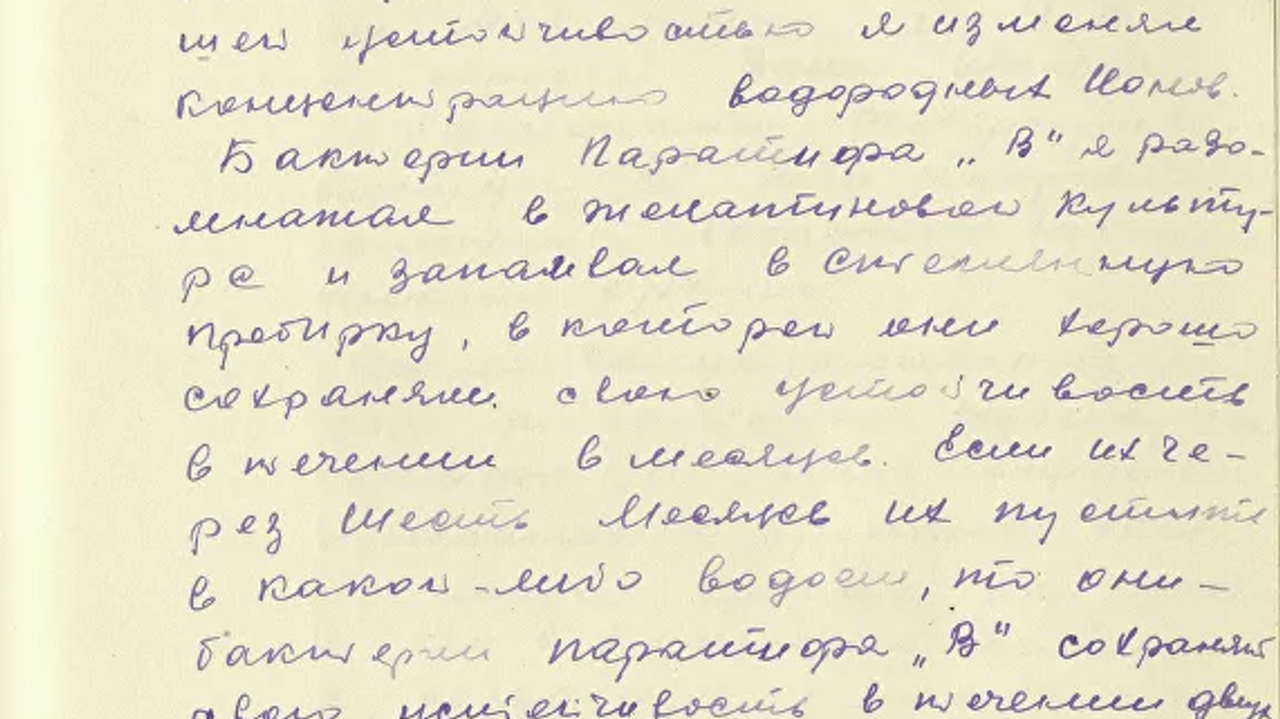 шей устойчивостью я изменял
концентрацию водородных Ионов.
Бактерии Паратифа „В" я разо-
множал в желатиновой культу-
ре и запаивал в стеклянную
пробирку, в которой они хорошо
сохраняли свою устойчивость
в течении 6 месяцев. Если их че-
рез Шесть Месяцев их пустить
в какой-либо водоем, то они-
бактерии паратифа „В" сохранят
свою устойчивость в течении двух